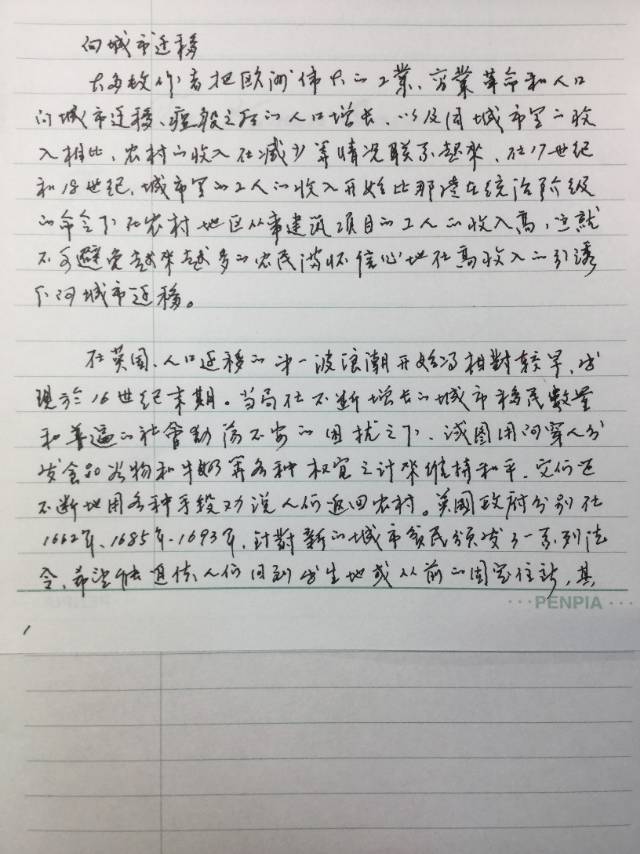 向城市迁移
大多数作者把欧洲伟大的工業、商業革命和人口
向城市迁移、瘟疫之后的人口增长、以及因城市里的收
入相比、农村的收入在减少等情况联系起來，在17世纪
和18世纪，城市里的工人的收入开始比那些在统治阶级
的命令下在农村地区从事建筑项目的工人的收入高，这就
不可避免越來越多的农民满怀信心地在高收入的引诱
下向城市迁移。
在英国、人口迁移的第一波浪潮开始得相對較早，出
現於16世紀末期。当局在不断增长的城市移民數量
和普遍的社會動荡不安的困扰之下、试图用向穷人分
发食品谷物和牛奶等各种权宜之计來維持和平，它们还
不断地用各种手段劝说人们返回农村。英國政府分别在
1662年、1685年、1693年，针對新的城市移民颁发了一系列法
令，希望能遣使人们回到出生地或从前的固定住所，其
PENPIA
1